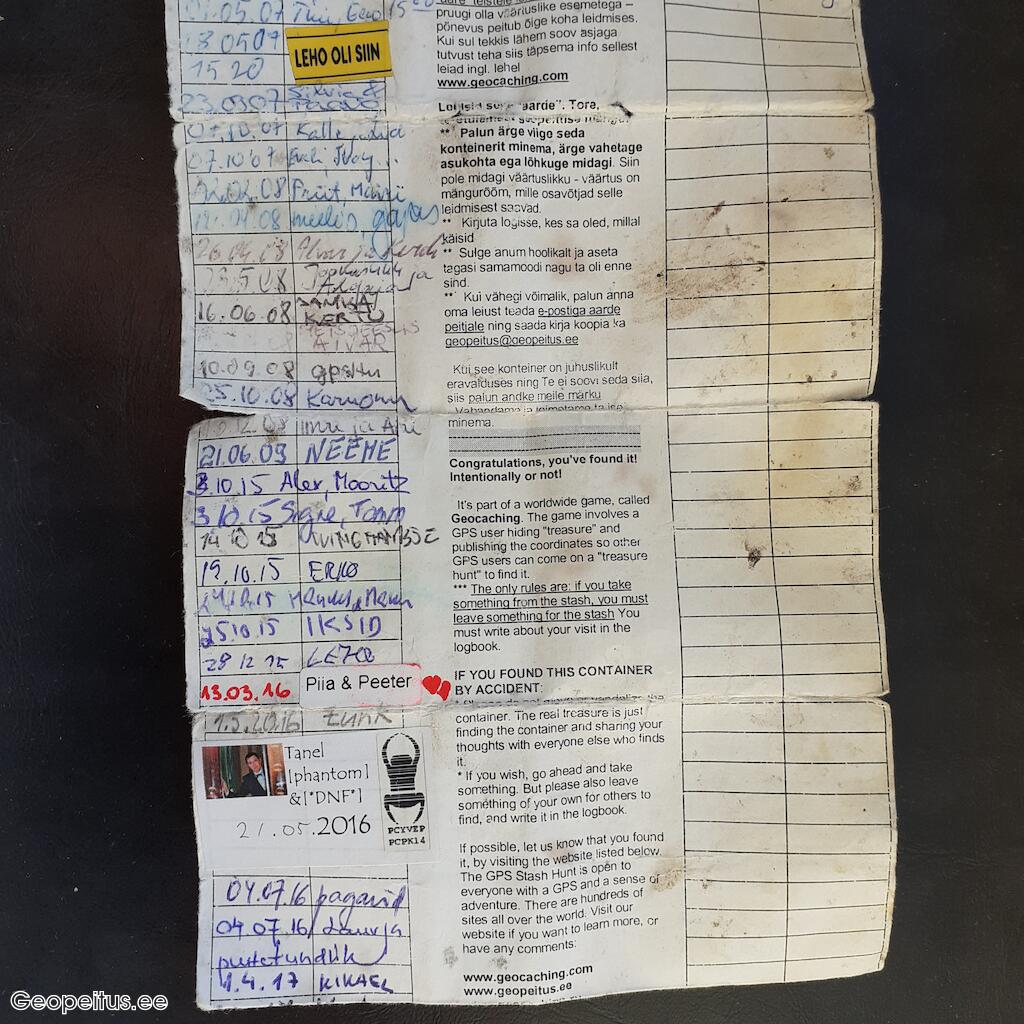 .05.07
LEHO OLI SIIN
15 20
23.0907
07.10.07 Kalle
07.10.07
02.08
.08
26.04.08
23.5.08
16.06.08
KERTU
AIVAR
10.09.08 gpsitu
25.10.08
.12.08
21.06.09 NEEME
3.10.15 Alex, Mooritz
3.10.15 Signe, Tomm
14 10 15
19.10.15 ERKO
25 10 15 IKSID
28 12 15
13.03.16 Piia & Peeter
1.5.2016
Tanel
[phantom]
&[*DNF*]
21.05.2016
PCYVEP
PCPK14
04.07.16 pagarid
04.07.16
1.4.17 KIKAEL
pruugi olla väärtuslike esemetega –
põnevus peitub õige koha leidmises.
Kui sul tekkis lähem soov asjaga
tutvust teha siis täpsema info sellest
leiad ingl. lehel
www.geocaching.com
"aarde". Tore,
** Palun ärge viige seda
konteinerit minema, ärge vahetage
asukohta ega lõhkuge midagi. Siin
pole midagi väärtuslikku - väärtus on
mängurõõm, mille osavõtjad selle
leidmisest saavad.
** Kirjuta logisse, kes sa oled, millal
käisid
** Sulge anum hoolikalt ja aseta
tagasi samamoodi nagu ta oli enne
sind.
** Kui vähegi võimalik, palun anna
oma leiust teada e-postiga aarde
peitjale ning saada kirja koopia ka
geopeitus@geopeitus.ee
Kui see konteiner on juhuslikult
eravalduses ning Te ei soovi seda siia,
siis palun andke meile märku
Vabandame ja
minema.
Congratulations, you've found it!
Intentionally or not!
It's part of a worldwide game, called
Geocaching. The game involves a
GPS user hiding "treasure" and
publishing the coordinates so other
GPS users can come on a "treasure
hunt" to find it.
*** The only rules are: if you take
something from the stash, you must
leave something for the stash You
must write about your visit in the
logbook.
IF YOU FOUND THIS CONTAINER
BY ACCIDENT:
* Please do not move or vandalize the
container. The real treasure is just
finding the container and sharing your
thoughts with everyone else who finds
it.
* If you wish, go ahead and take
something. But please also leave
something of your own for others to
find, and write it in the logbook.
If possible, let us know that you found
it, by visiting the website listed below.
The GPS Stash Hunt is open to
everyone with a GPS and a sense of
adventure. There are hundreds of
sites all over the world. Visit our
website if you want to learn more, or
have any comments:
www.geocaching.com
www.geopeitus.ee
Geopeitus.ee